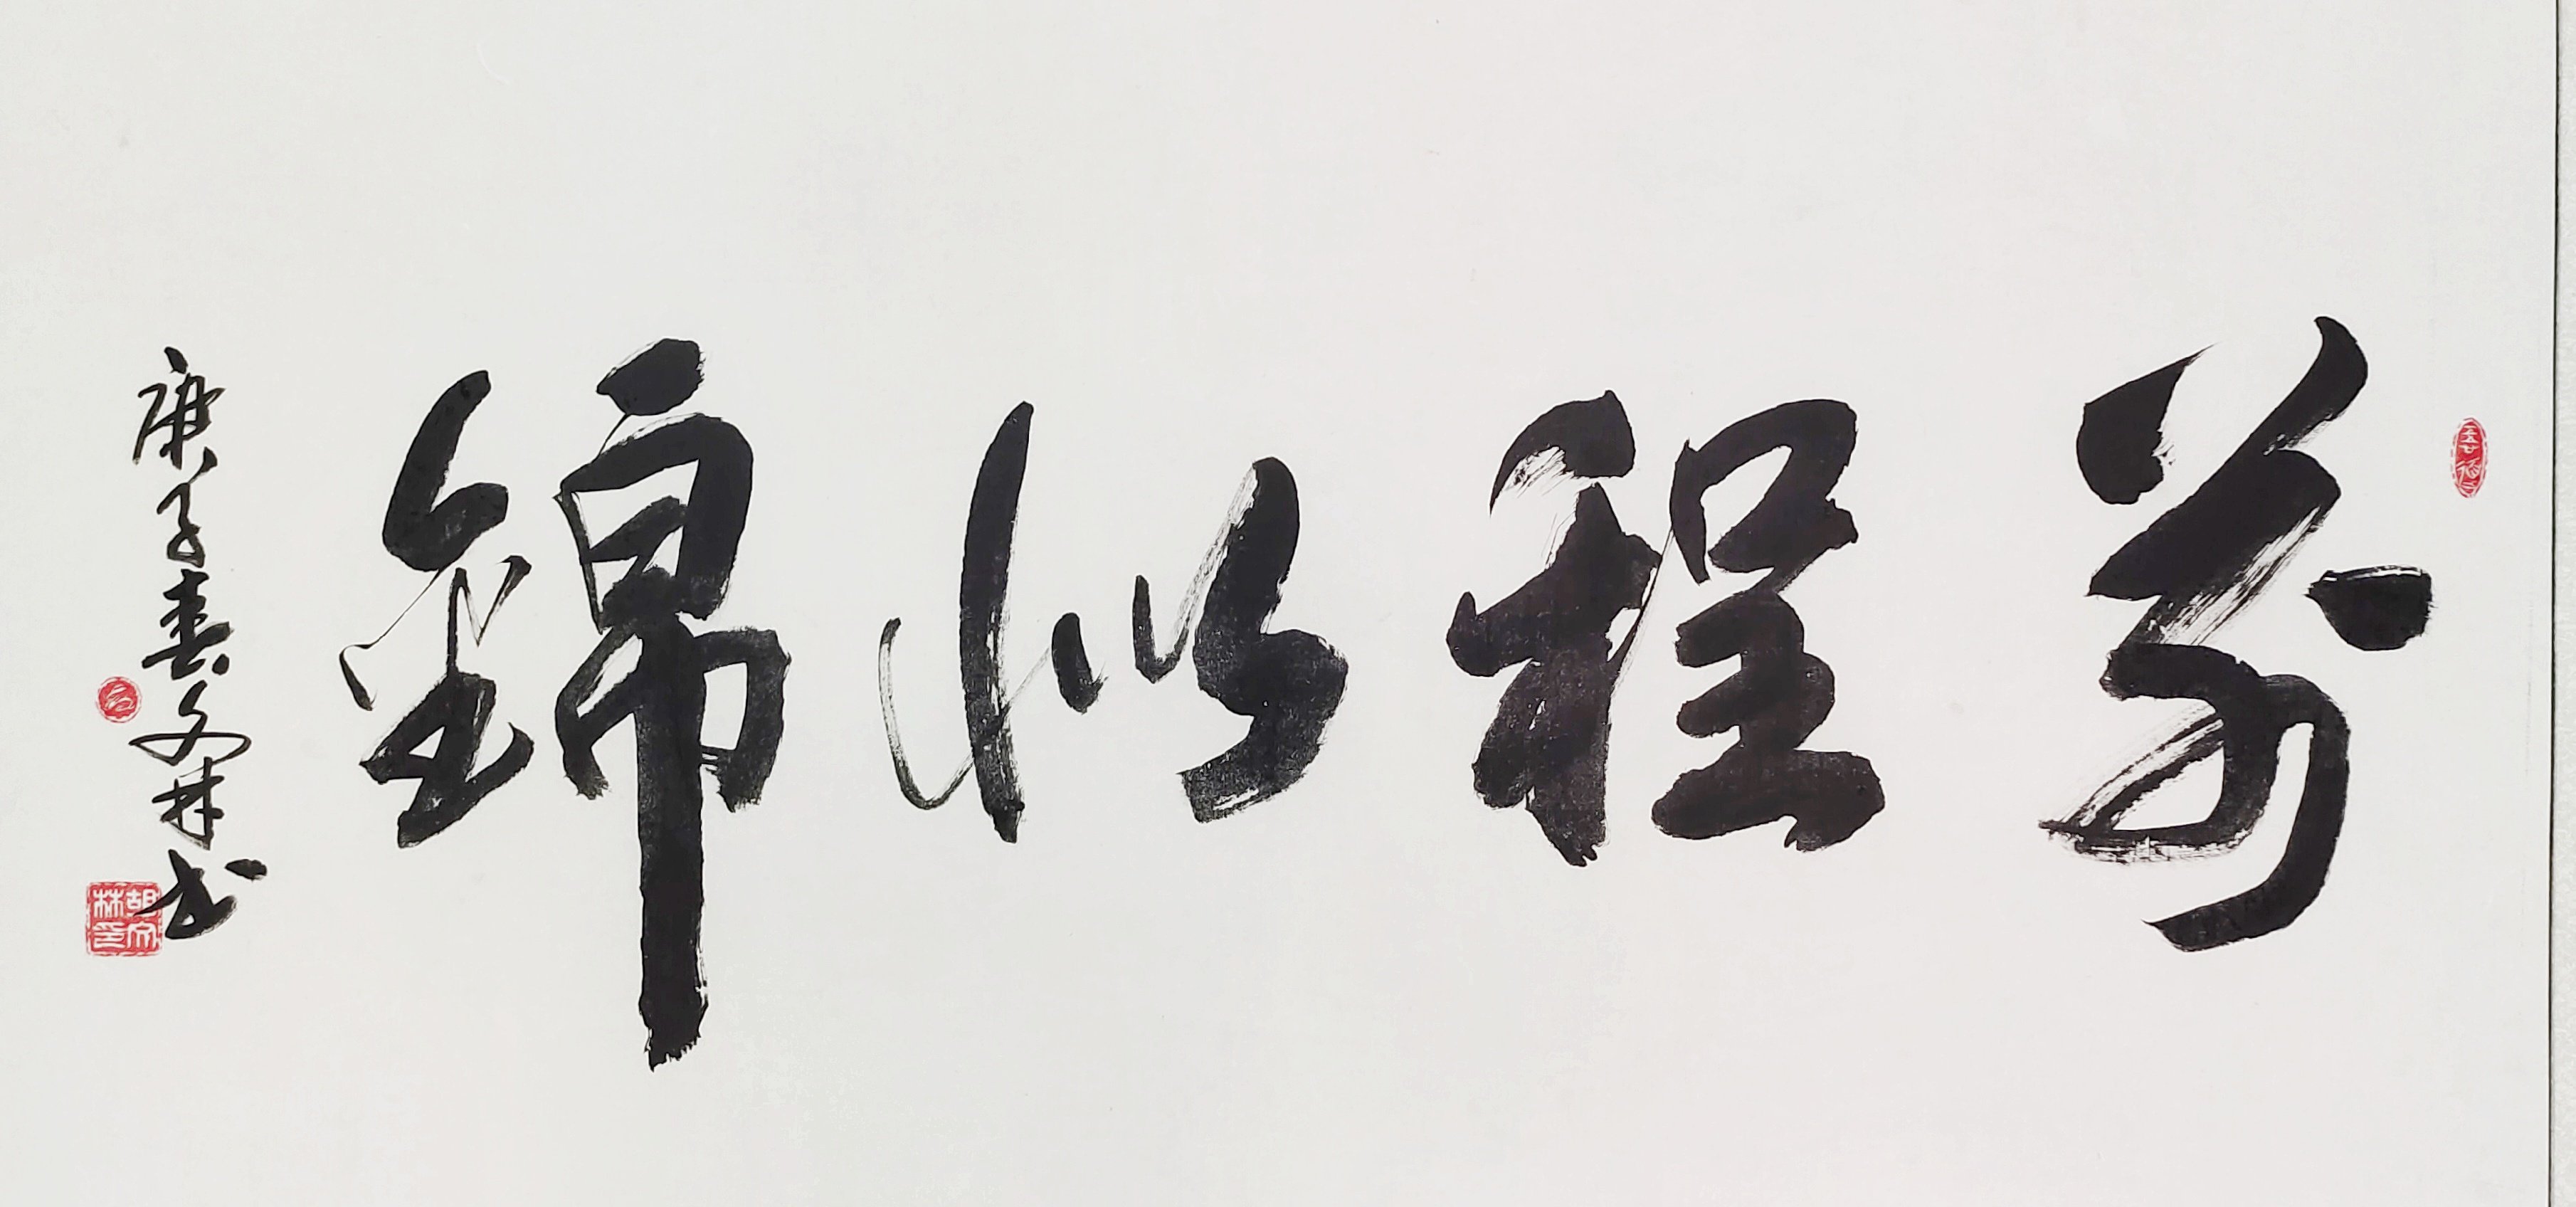 前程似錦
庚子春文林書
胡文林印